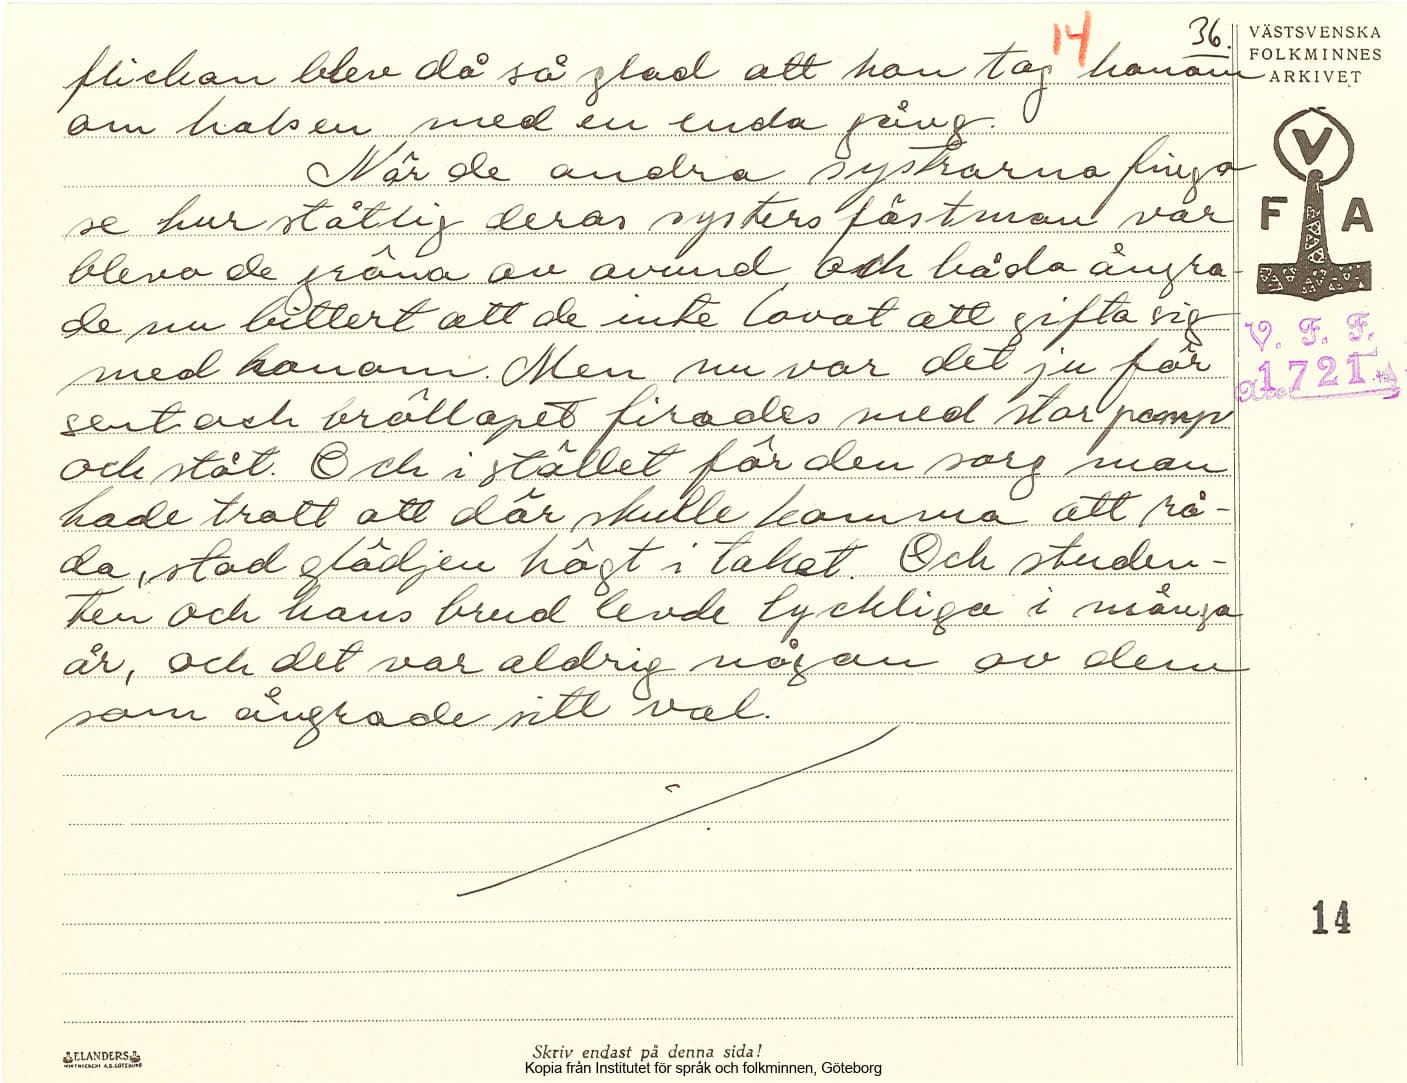 14
36.
flickan blev då så glad att hon tog honom
om halsen med en enda gång.
När de andra systrarna fingo
se hur ståtlig deras systers fästman var
blevo de gröna av avund, och båda ångra-
de nu bittert att de inte lovat att gifta sig
med honom. Men nu var det ju för
sent och bröllopet firades med stor pomp
och ståt. Och i stället för den sorg man
hade trott att där skulle komma att rå-
da, stod glädjen högt i taket. Och studen-
ten och hans brud levde lyckliga i många
år, och det var aldrig någon av dem
som ångrade sitt val.
VÄSTSVENSKA
FOLKMINNES
ARKIVET
V
F A
V. F. F.
Acc. 1721
14
ELANDERS
Skriv endast på denna sida!
Kopia från Institutet för språk och folkminnen, Göteborg